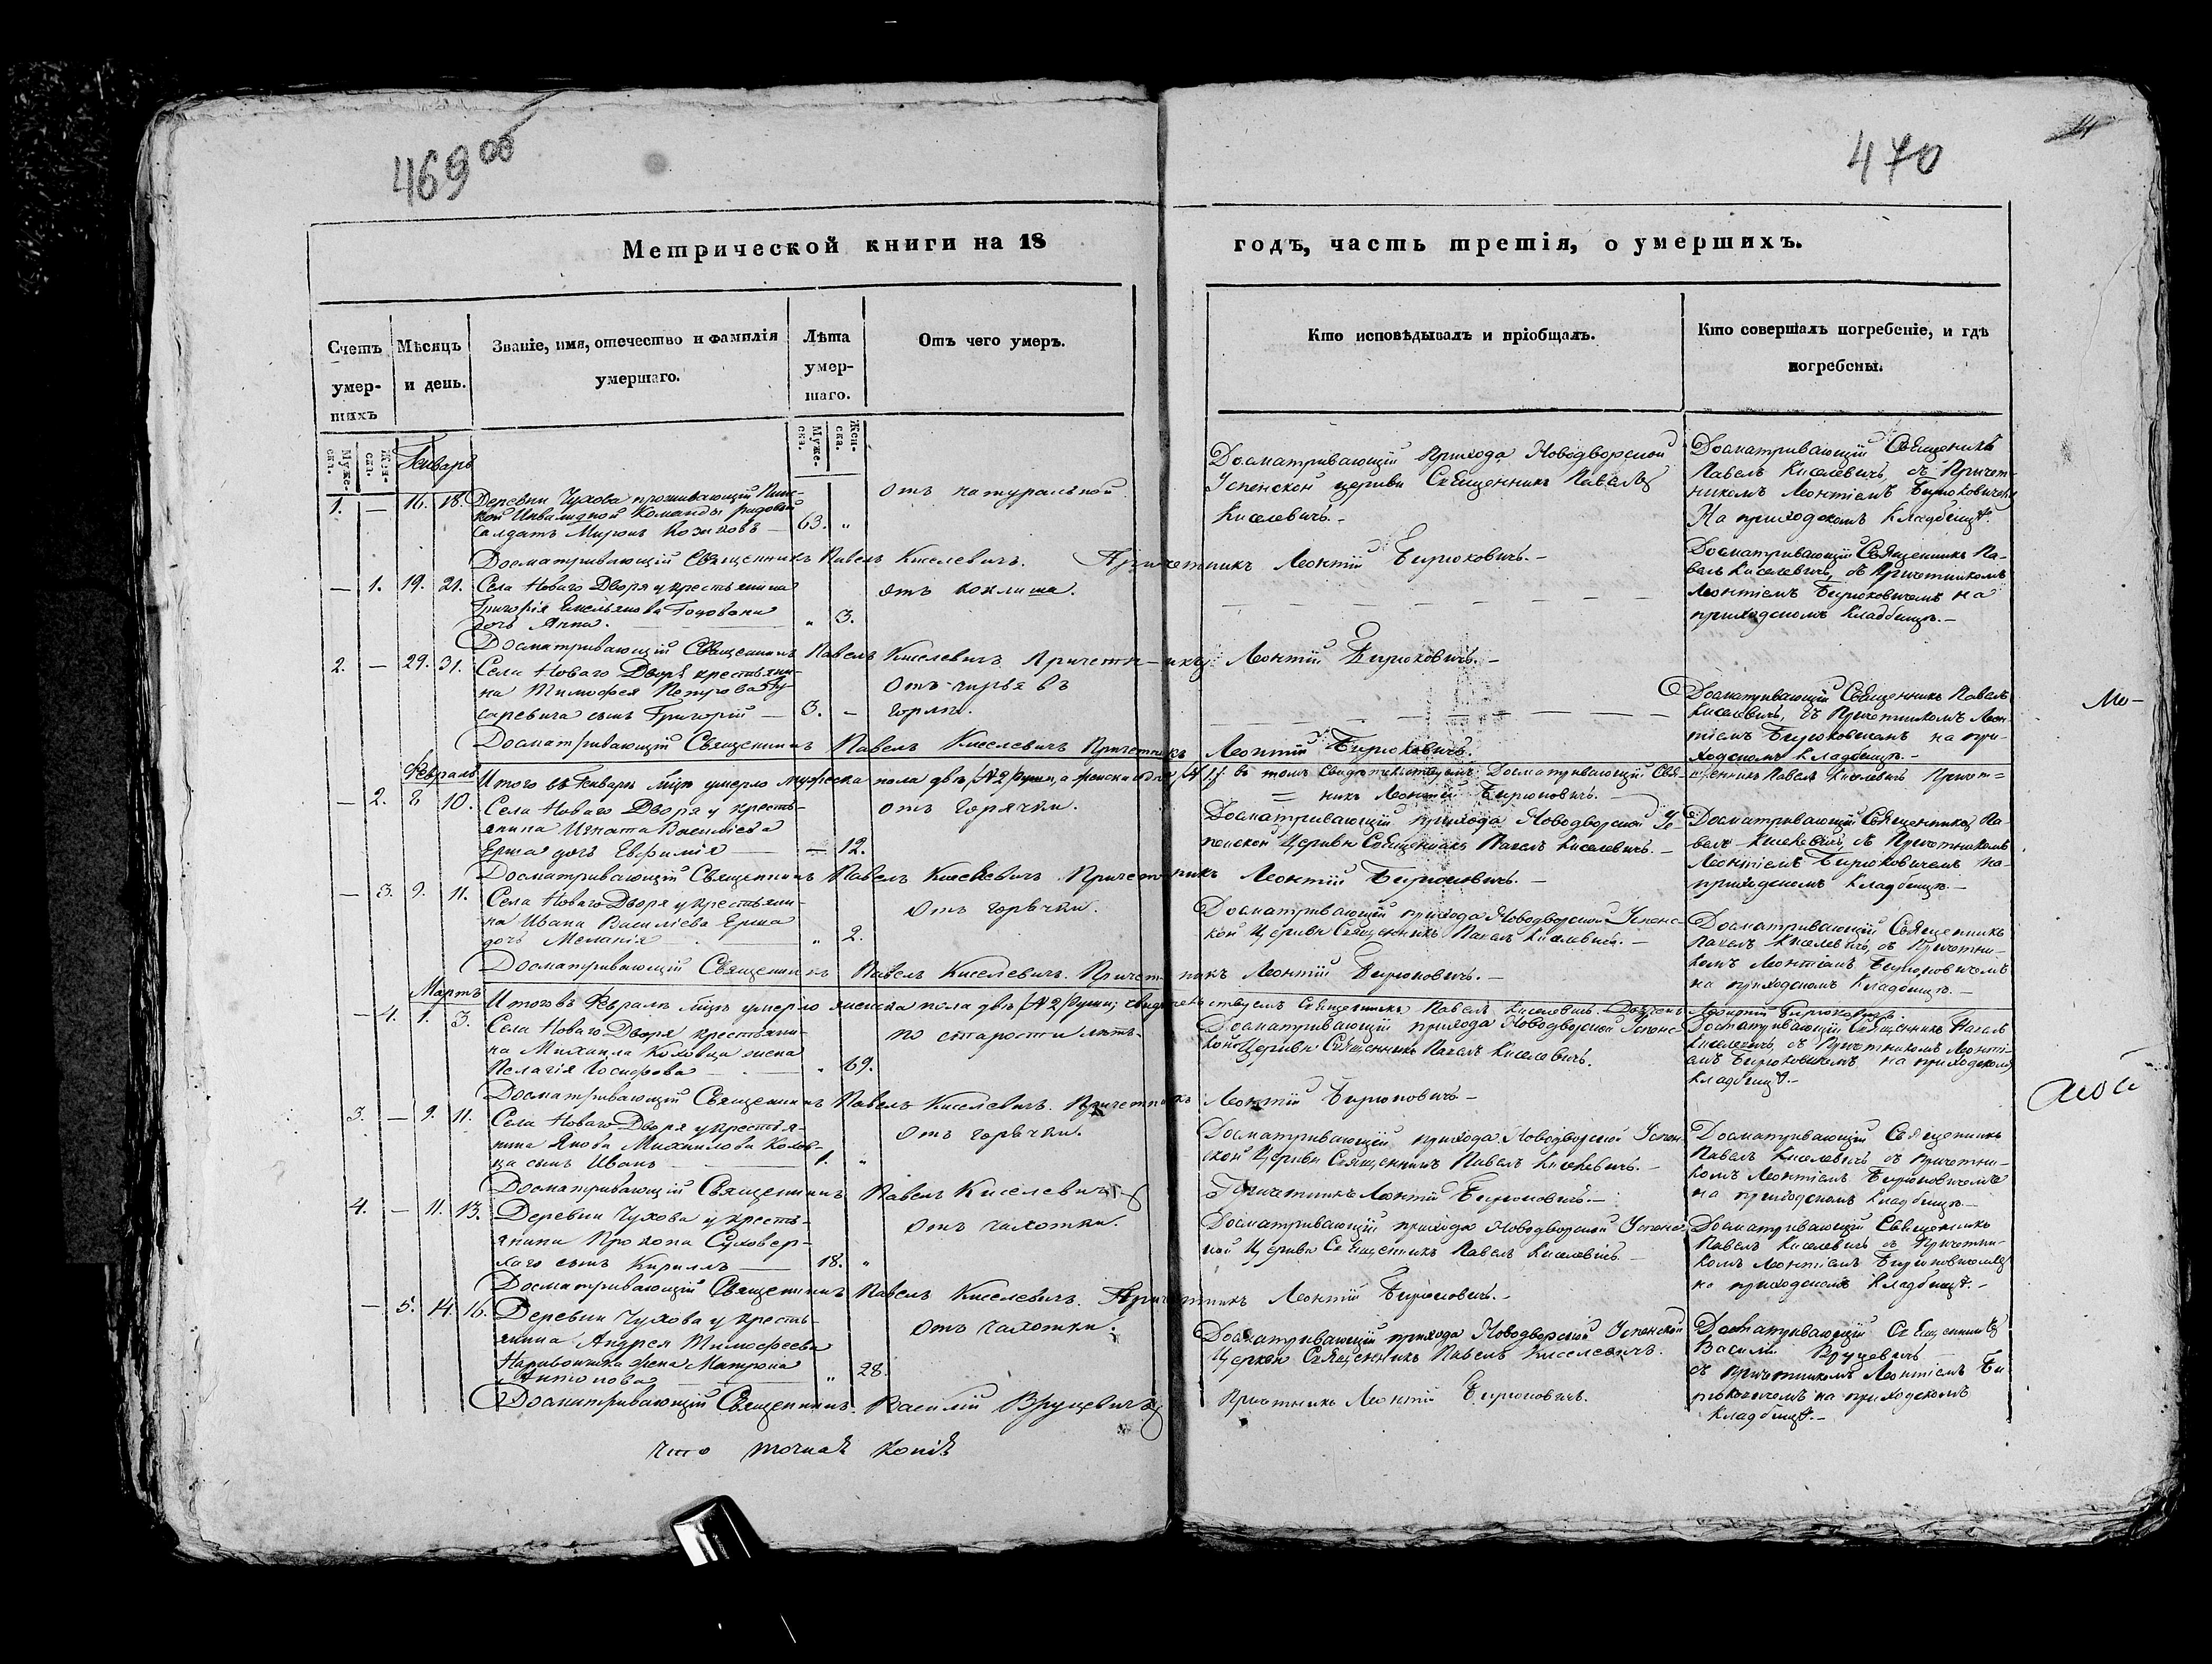 469 об
470
Метрической книги на 18
годъ, часть третія, о умершихъ.
Счетъ умер-
шихъ
Мѣсяцъ
и день.
Званіе, имя, отечество и фамилія
умершаго.
Лѣта
умер-
шаго.
Отъ чего умеръ.
Кто исповѣдывалъ и пріобщалъ.
Кто совершалъ погребеніе, и гдѣ
погребены.
Муже-
ска.
Жен-
ска.
Муже-
ска.
Жен-
ска.
Генварь
1. — 16. 18. Деревни Чухова проживающій Пинс-
кой Инвалидной Команды рядовой
салдатъ Миронъ 63. „
отъ натуральной
Досматривающій прихода Новодворской
Успенской церкви Священникъ Павелъ
Киселевичъ.-
Досматривающій Священникъ
Павелъ Киселевичъ, съ Причет-
никомъ Леонтіемъ Бирюковичемъ
На приходскомъ Кладбищѣ.
Досматривающій Священникъ Павелъ Киселевичъ. Причетникъ Леонтій Бирюковичъ.-
— 1. 19. 21. Села Новаго Двора у крестьянина
Григорія Емельянова Годована
дочь Анна. „ 3.
отъ коклиша.
Досматривающій Священникъ Па-
велъ Киселевичъ, съ Причетникомъ
Леонтіемъ Бирюковичемъ на
приходскомъ Кладбищѣ.-
Досматривающій Священникъ Павелъ Киселевичъ Причетникъ Леонтій Бирюковичъ.-
2. — 29. 31. Села Новаго Двора крестьяни-
на Тимофея Петрова
саревича сынъ Григорій — 3. -
отъ чирья въ
горлѣ.
Досматривающій Священникъ Павелъ
Киселевичъ, съ Причетникомъ Леон-
тіемъ Бирюковичемъ на при-
ходскомъ Кладбищѣ.-
Мо-
Досматривающій Священникъ Павелъ Киселевичъ Причетникъ Леонтій Бирюковичъ.
Февраль
Итого въ Генварѣ мцѣ умерло мужеска пола двѣ /№2/ души, а женска одна /№1/ въ томъ свидетельствуемъ Досматривающій Свя-
щенникъ Павелъ Киселевичъ Причет=
= никъ Леонтій Бирюковичъ.
— 2. 8 10. Села Новаго Двора у кресть-
янина Игната Василіева
Ерша дочь Евфимія — 12.
отъ горячки.
Досматривающій прихода Новодворской Ус-
пенской Церкви Священникъ Павелъ Киселевичъ.-
Досматривающій Священникъ Па-
велъ Киселевичъ, съ Причетникомъ
Леонтіемъ Бирюковичемъ на
приходскомъ Кладбищѣ.-
Досматривающій Священникъ Павелъ Киселевичъ Причетникъ Леонтій Бирюковичъ.-
— 3. 9. 11. Села Новаго Двора у крестьяни-
на Ивана Василіева Ерша
дочь Меланія „ 2.
отъ горѣчки.
Досматривающій прихода Новодворской Успенс-
кой Церкви Священникъ Павелъ Киселевичъ.-
Досматривающій Священникъ
Павелъ Киселевичъ, съ Причетни-
комъ Леонтіемъ Бирюковичемъ
на приходскомъ Кладбищѣ.-
Досматривающій Священникъ Павелъ Киселевичъ. Причетникъ Леонтій Бирюковичъ.-
Мартъ
Итого въ Февралѣ мцѣ умерло женска пола двѣ /№2/ души; свидетельствуемъ Священникъ Павелъ Киселевичъ. Леонтій Бирюковичъ.
— 4. 1. 3. Села Новаго Двора крестьяни-
на Михаила Коховца жена
Пелагія Іосифова „ 69.
по старости лѣтъ.
Досматривающій прихода Новодворской Успенс-
кой Церкви Священникъ Павелъ Киселевичъ.
Досматривающій Священникъ Павелъ
Киселевичъ, съ Причетникомъ Леонті-
емъ Бирюковичемъ на приходскомъ
Кладбищѣ.-
Досматривающій Священникъ Павелъ Киселевичъ. Причетникъ Леонтій Бирюковичъ-
3. — 9. 11. Села Новаго Двора у крестья-
нина Якова Михаилова Кохов-
ца сынъ Иванъ 1. „
отъ горѣчки.
Досматривающій прихода Новодворской Успен-
ской Церкви Священникъ Павелъ Киселевичъ.-
Досматривающій Священникъ
Павелъ Киселевичъ съ Причетни-
комъ Леонтіемъ Бирюковичемъ
на приходскомъ Кладбищѣ.-
Досматривающій Священникъ Павелъ Киселевичъ Причетникъ Леонтій Бирюковичъ.-
4. — 11. 13. Деревни Чухова у кресть-
янина Прокопа Суховер-
хаго сынъ Кириллъ 18. „
отъ чахотки.
Досматривающій прихода Новодворской Успенс-
кой Церкви Священникъ Павелъ Киселевичъ-
Досматривающій Священникъ
Павелъ Киселевичъ съ Причетни-
комъ Леонтіемъ Бирюковичемъ
на приходскомъ Кладбищѣ.-
Досматривающій Священникъ Павелъ Киселевичъ. Причетникъ Леонтій Бирюковичъ.-
— 5. 14. 16. Деревни Чухова у кресть-
янина Андрея Тимофеева
жена Матрона
Антонова „ 28.
отъ чахотки.
Досматривающій прихода Новодворской Успенской
Церкви Священникъ Павелъ Киселевичъ.
Досматривающій Священникъ
Василій Вруцевичъ
съ Причетникомъ Леонтіемъ Би-
рюковичемъ на приходскомъ
Кладбищѣ.-
Досматривающій Священникъ Василій Вруцевичъ
Причетникъ Леонтій Бирюковичъ.
что точная копія